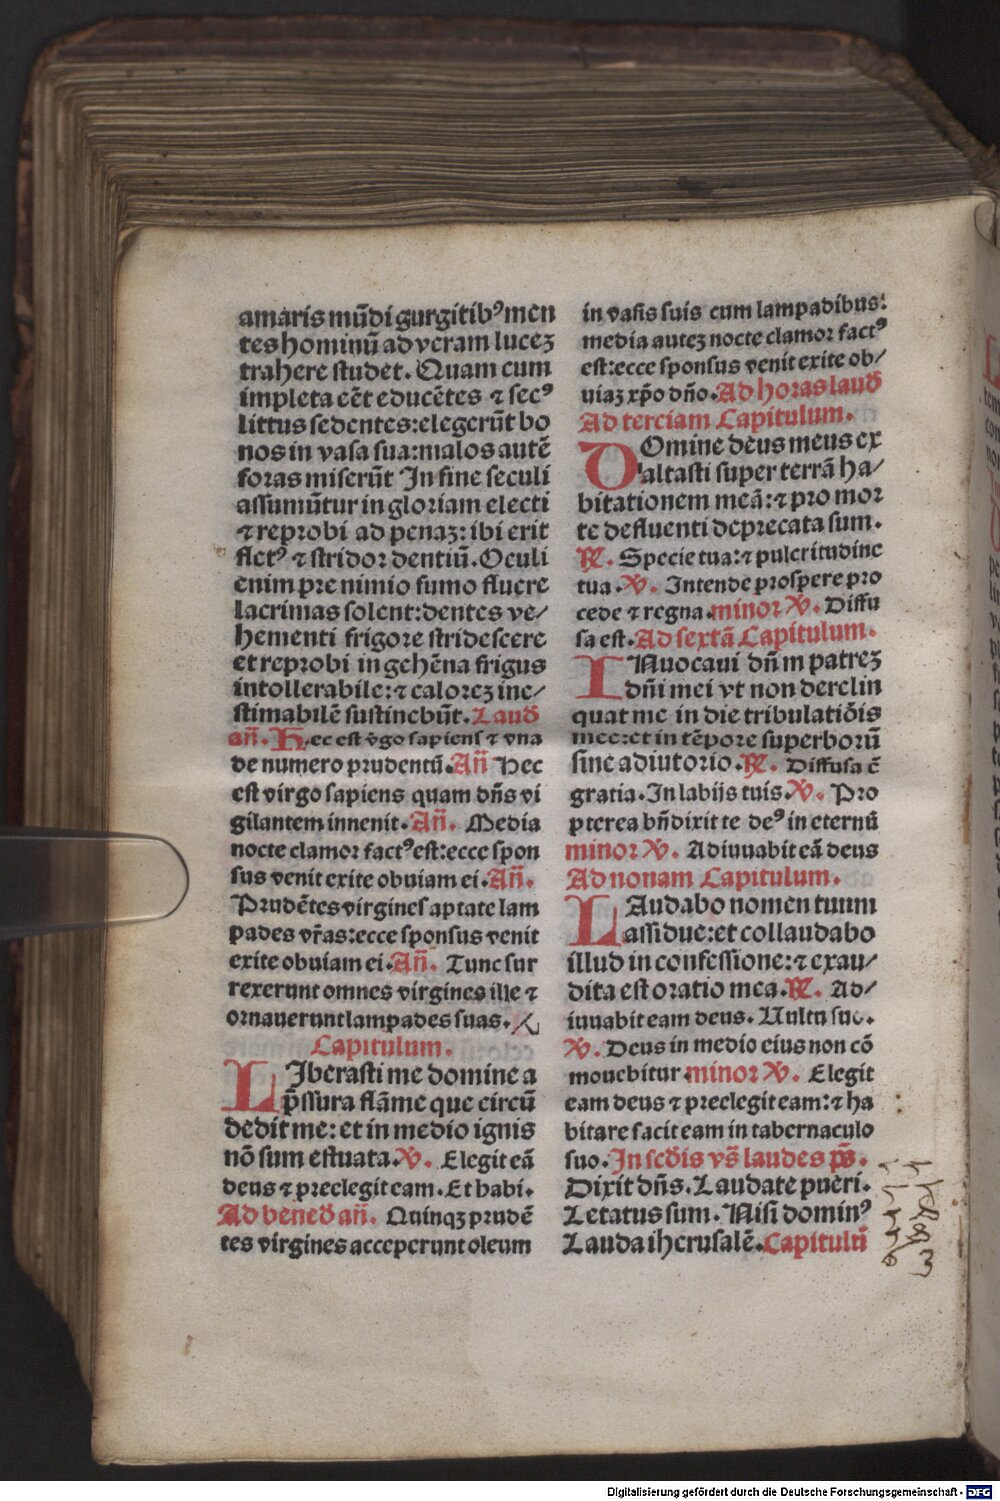 amaris mūdi gurgitibꝰ men
tes hominū ad veram lucez
trahere studet. Quam cum
impleta eēt educētes ⁊ secꝰ
littus sedentes: elegerūt bo
nos in vasa sua: malos autē
foras miserūt In fine seculi
assumūtur in gloriam electi
⁊ reprobi ad penaꝫ: ibi erit
fletꝰ ⁊ stridor dentiū. Oculi
enim pre nimio fumo fluere
lacrimas solent: dentes ve/
hementi frigore stridescere
et reprobi in gehēna frigus
intollerabile: ⁊ caloreꝫ ine/
stimabilē sustinebūt. Laud
añ. Hec est v̄go sapiens ⁊ vna
de numero prudentū. Añ Hec
est virgo sapiens quam dn̄s vi
gilantem innenit. Añ. Media
nocte clamor factꝰ est: ecce spon
sus venit exite obuiam ei. Añ.
Prudētes virgines aptate lam
pades vr̄as: ecce sponsus venit
exite obuiam ei. Añ. Tunc sur
rexerunt omnes virgines ille ⁊
ornauerunt lampades suas.
Capitulum.
LIberasti me domine a
p̄ssura flāme que circū
dedit me: et in medio ignis
nō sum estuata. ℣. Elegit eā
deus ⁊ preelegit eam. Et habi.
Ad bened añ. Quinqꝫ prudē
tes virgines acceperunt oleum
in vasis suis cum lampadibus:
media auteꝫ nocte clamor factꝰ
est: ecce sponsus venit exite ob/
uiaꝫ xp̄o dn̄o. Ad horas laud
Ad terciam Capitulum.
DOmine deus meus ex
altasti super terrā ha/
bitationem meā: ⁊ pro mor
te defluenti deprecata sum.
℟. Specie tua: ⁊ pulcritudine
tua. ℣. Intende prospere pro
cede ⁊ regna. minor ℣. Diffu
sa est. Ad sextā Capitulum.
INuocaui dn̄m patreꝫ
dn̄i mei vt non derelin
quat me in die tribulatiōis
mee: et in tēpore superborū
sine adiutorio. ℟. Diffusa ē
gratia. In labijs tuis. ℣. Pro
pterea bn̄dixit te deꝰ in eternū
minor ℣. Adiuuabit eā deus
Ad nonam Capitulum.
LAudabo nomen tuum
assidue: et collaudabo
illud in confessione: ⁊ exau/
dita est oratio mea. ℟. Ad/
iuuabit eam deus. Uultu suo.
℣. Deus in medio eius non cō
mouebitur. minor ℣. Elegit
eam deus ⁊ preelegit eam: ⁊ ha
bitare facit eam in tabernaculo
suo. In scd̄is vs̄ laudes ps̄.
Dixit dn̄s. Laudate pueri.
Letatus sum. Nisi dominꝰ
Lauda iherusalē. Capitulū
Digitalisierung gefördert durch die Deutsche Forschungsgemeinschaft - DFG